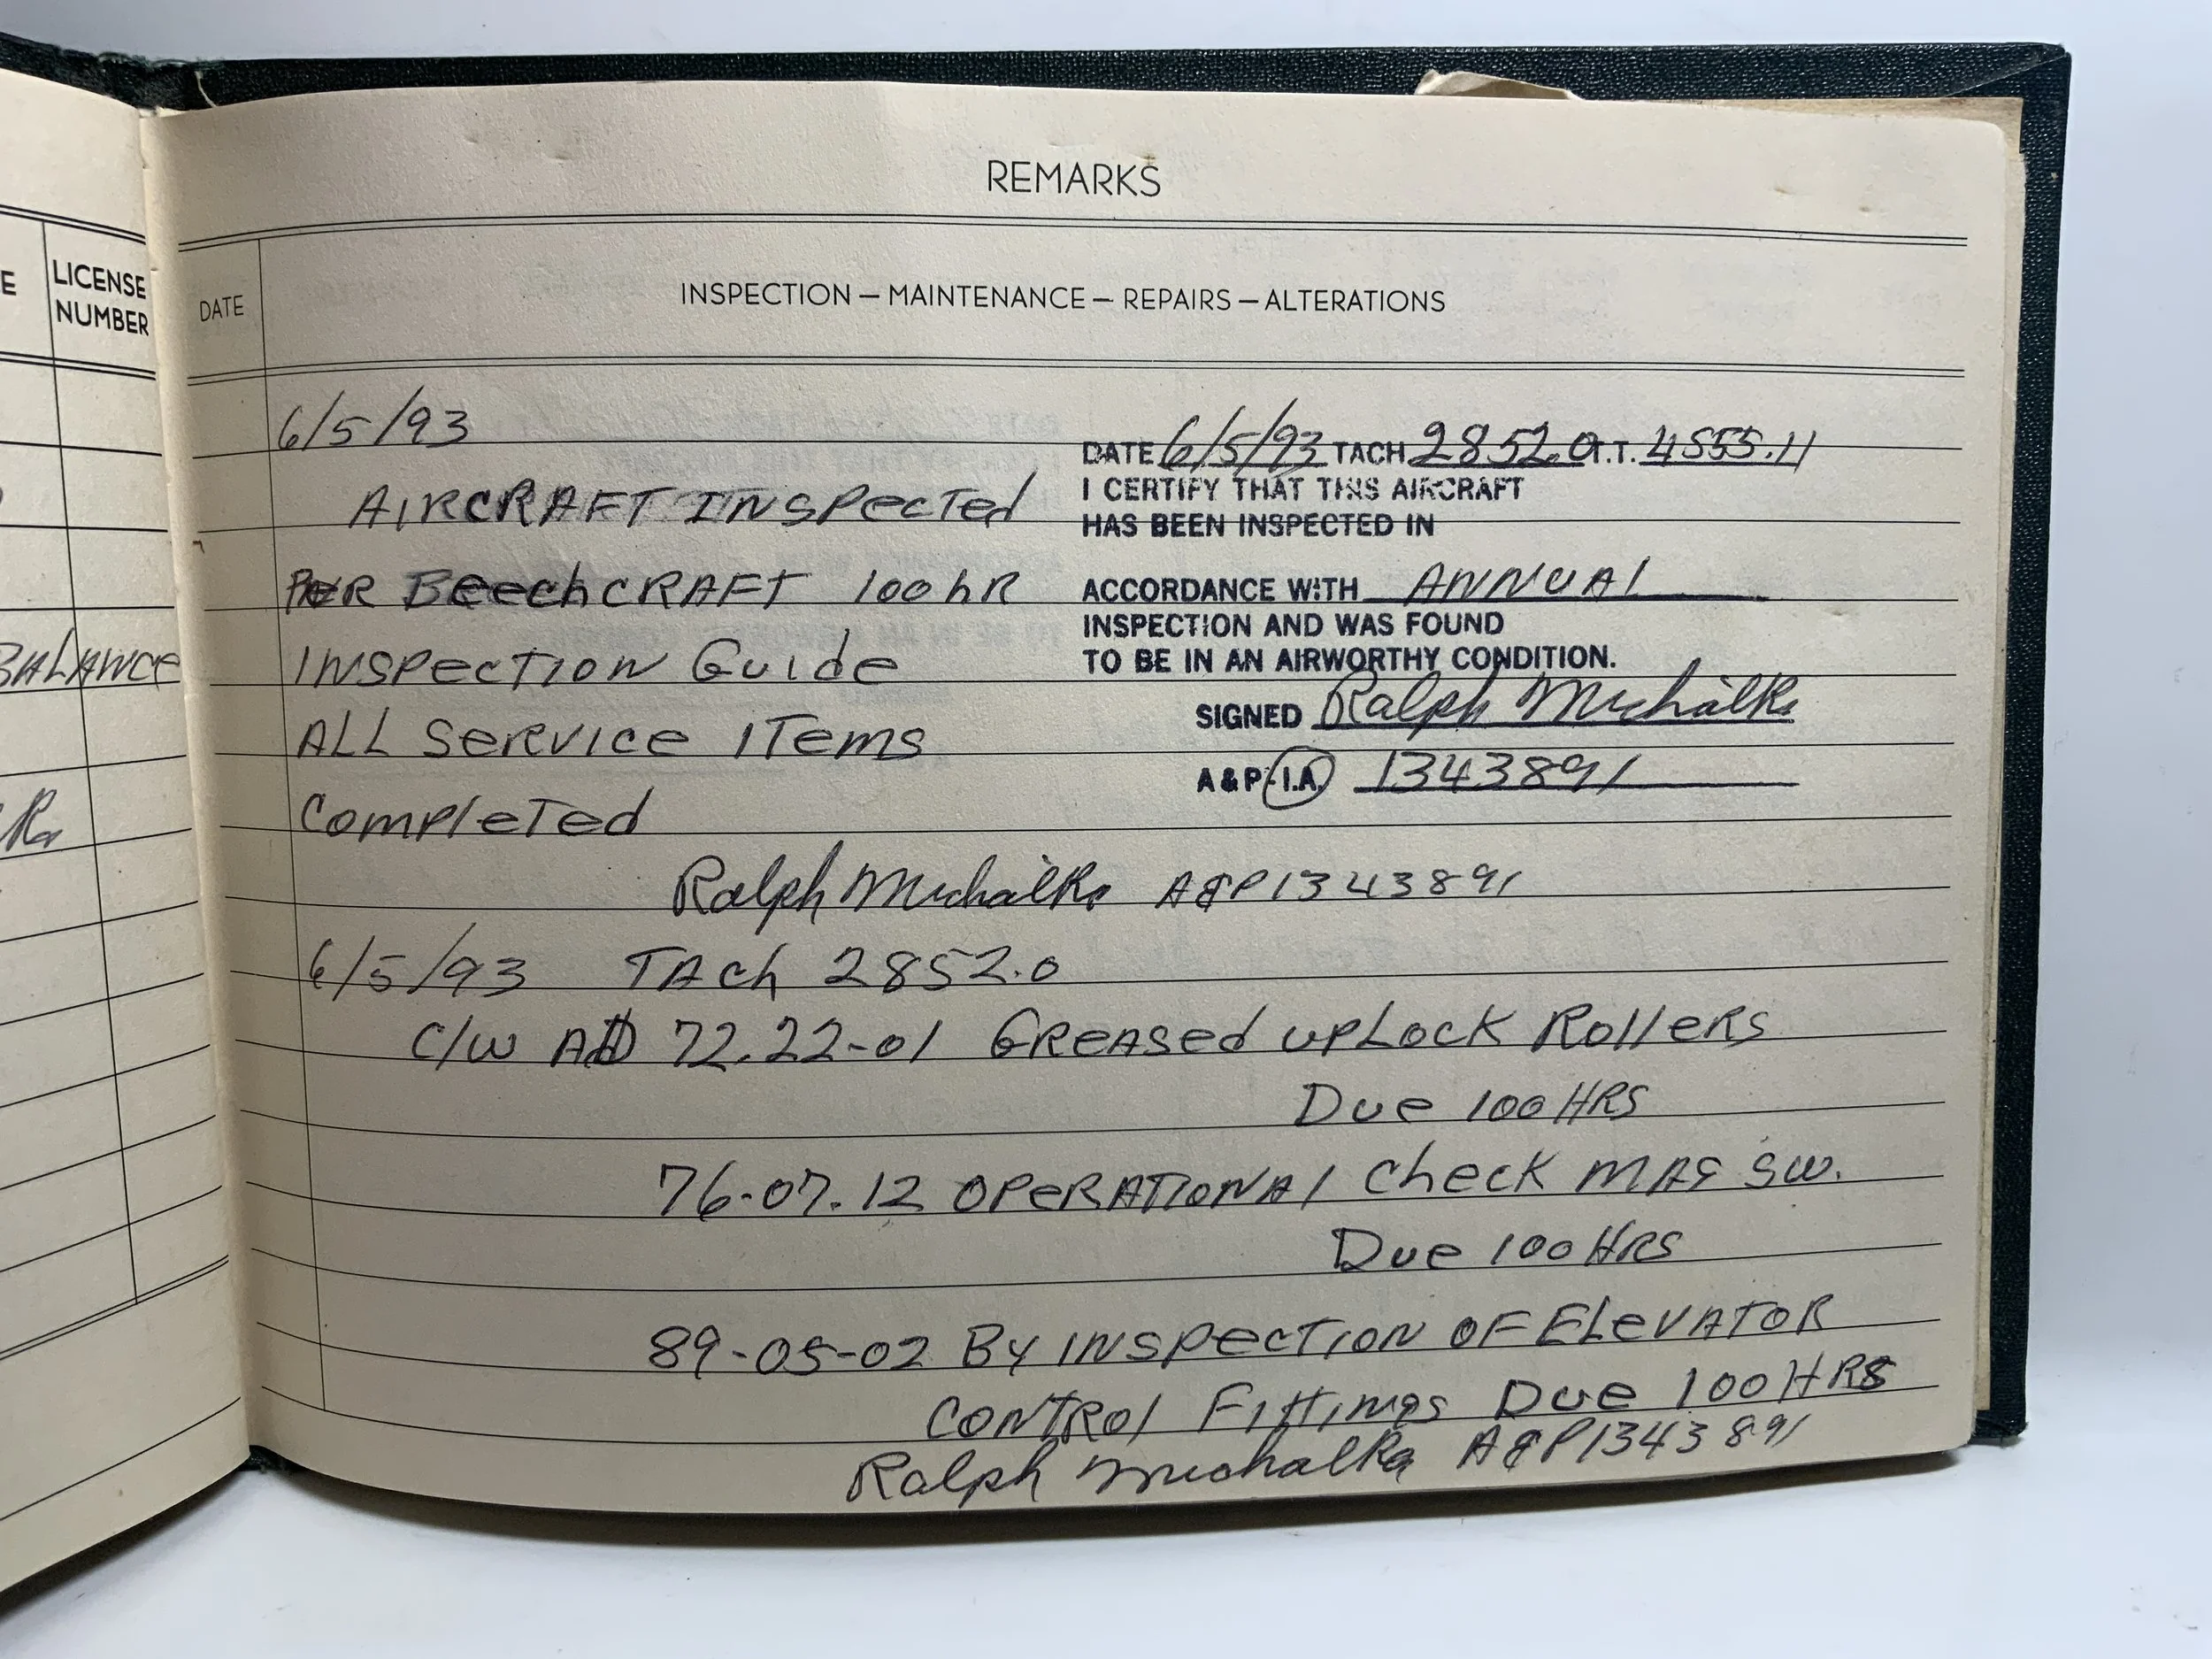 REMARKS
E
LICENSE
NUMBER
DATE
INSPECTION — MAINTENANCE — REPAIRS — ALTERATIONS
BALANCE
6/5/93
AIRCRAFT INSPECTED
PER BEECHCRAFT 100 HR
INSPECTION GUIDE
ALL SERVICE ITEMS
COMPLETED
DATE 6/5/93 TACH 2852.0 T.T. 4555.11
I CERTIFY THAT THIS AIRCRAFT
HAS BEEN INSPECTED IN
ACCORDANCE WITH ANNUAL
INSPECTION AND WAS FOUND
TO BE IN AN AIRWORTHY CONDITION.
SIGNED Ralph Michalka
A & P - I.A. 1343891
Ralph Michalka A&P 1343891
6/5/93 TACH 2852.0
C/W AD 72.22-01 GREASED UPLOCK ROLLERS
DUE 100 HRS
76-07.12 OPERATIONAL CHECK MAG SW.
DUE 100 HRS
89-05-02 BY INSPECTION OF ELEVATOR
CONTROL FITTINGS DUE 100 HRS
Ralph Michalka A&P 1343891